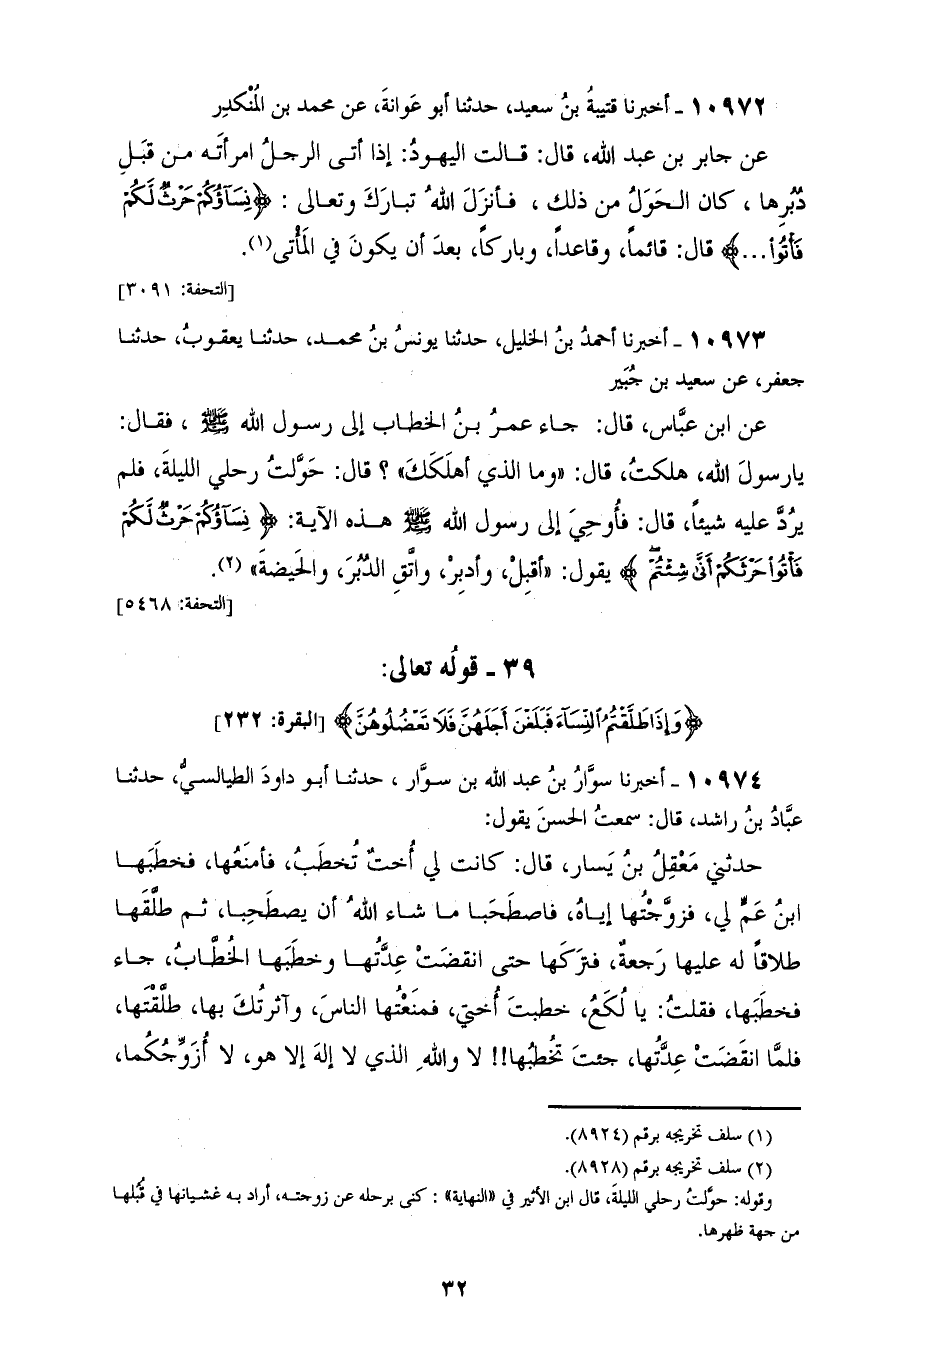 ١٠٩٧٢ - أخبرنا قتيبةُ بنُ سعيد، حدثنا أبو عَوانةَ، عن محمد بن المُنْكَدِر
عن جابر بن عبد الله، قال: قـالت اليهودُ: إذا أتـى الرجـلُ امرأتَـه مـن قِبَلِ
دُبُرِها ، كان الـحَوَلُ من ذلك ، فـأنزَلَ اللهُ تبـاركَ وتعـالى : ﴿نِسَآؤُكُمْ حَرْثٌ لَّكُمْ
فَأْتُوا۟...﴾ قال: قائماً، وقاعداً، وباركاً، بعدَ أن يكونَ في المَأْتى(١).
[التحفة: ٣٠٩١]
١٠٩٧٣ - أخبرنا أحمدُ بنُ الخليل، حدثنا يونسُ بنُ محمـد، حدثنـا يعقـوبُ، حدثنـا
جعفر، عن سعيد بن جُبَير
عن ابن عبَّاس، قال: جـاء عمـرُ بـنُ الخطـاب إلى رسـول الله ﷺ ، فقـال:
يارسولَ الله، هلكتُ، قال: «وما الذي أهلَكَكَ» ؟ قال: حَوَّلتُ رحلي الليلةَ، فلم
يرُدَّ عليه شيئاً، قال: فأُوحِيَ إلى رسول الله ﷺ هـذه الآيـة: ﴿ نِسَآؤُكُمْ حَرْثٌ لَّكُمْ
فَأْتُوا۟ حَرْثَكُمْ أَنَّىٰ شِئْتُمْ ۖ ﴾ يقول: «أقبِلْ، وأدبِرْ، واتَّقِ الدُّبُرَ، والحَيضةَ» (٢).
[التحفة: ٥٤٦٨]
٣٩ - قولُه تعالى:
﴿ وَإِذَا طَلَّقْتُمُ ٱلنِّسَآءَ فَبَلَغْنَ أَجَلَهُنَّ فَلَا تَعْضُلُوهُنَّ ﴾ [البقرة: ٢٣٢]
١٠٩٧٤ - أخبرنـا سوَّارُ بنُ عبد الله بن سوَّار ، حدثنـا أبـو داودَ الطيالسيُّ، حدثنـا
عبَّادُ بنُ راشد، قال: سمعتُ الحسنَ يقول:
حدثني مَعْقِلُ بنُ يَسار، قال: كانت لي أُختٌ تُخطَبُ، فأمنَعُها، فخطَبَهـا
ابنُ عَمٍّ لي، فزوَّجْتُها إياهُ، فاصطَحَبا مـا شـاء اللهُ أن يصطَحِبـا، ثـم طلَّقَهـا
طلاقاً له عليها رَجعةٌ، فتركَها حتى انقضَتْ عِدَّتُهـا وخطَبَهـا الخُطَّـابُ، جـاء
فخطَبَها، فقلتُ: يا لُكَعُ، خطبتَ أُختي، فمنَعْتُها الناسَ، وآثرتُكَ بها، طلَّقْتَها،
فلمَّا انقَضَتْ عِدَّتُها، جئتَ تَخطُبُها!! لا واللهِ الذي لا إلهَ إلا هو، لا أُزَوِّجُكُما،
(١) سلف تخريجه برقم (٨٩٢٤).
(٢) سلف تخريجه برقم (٨٩٢٨).
وقوله: حوَّلتُ رحلي الليلةَ، قال ابن الأثير في «النهاية» : كنى برحله عن زوجتـه، أراد بـه غشـيانها في قُبُلهـا
من جهة ظهرها.
٣٢